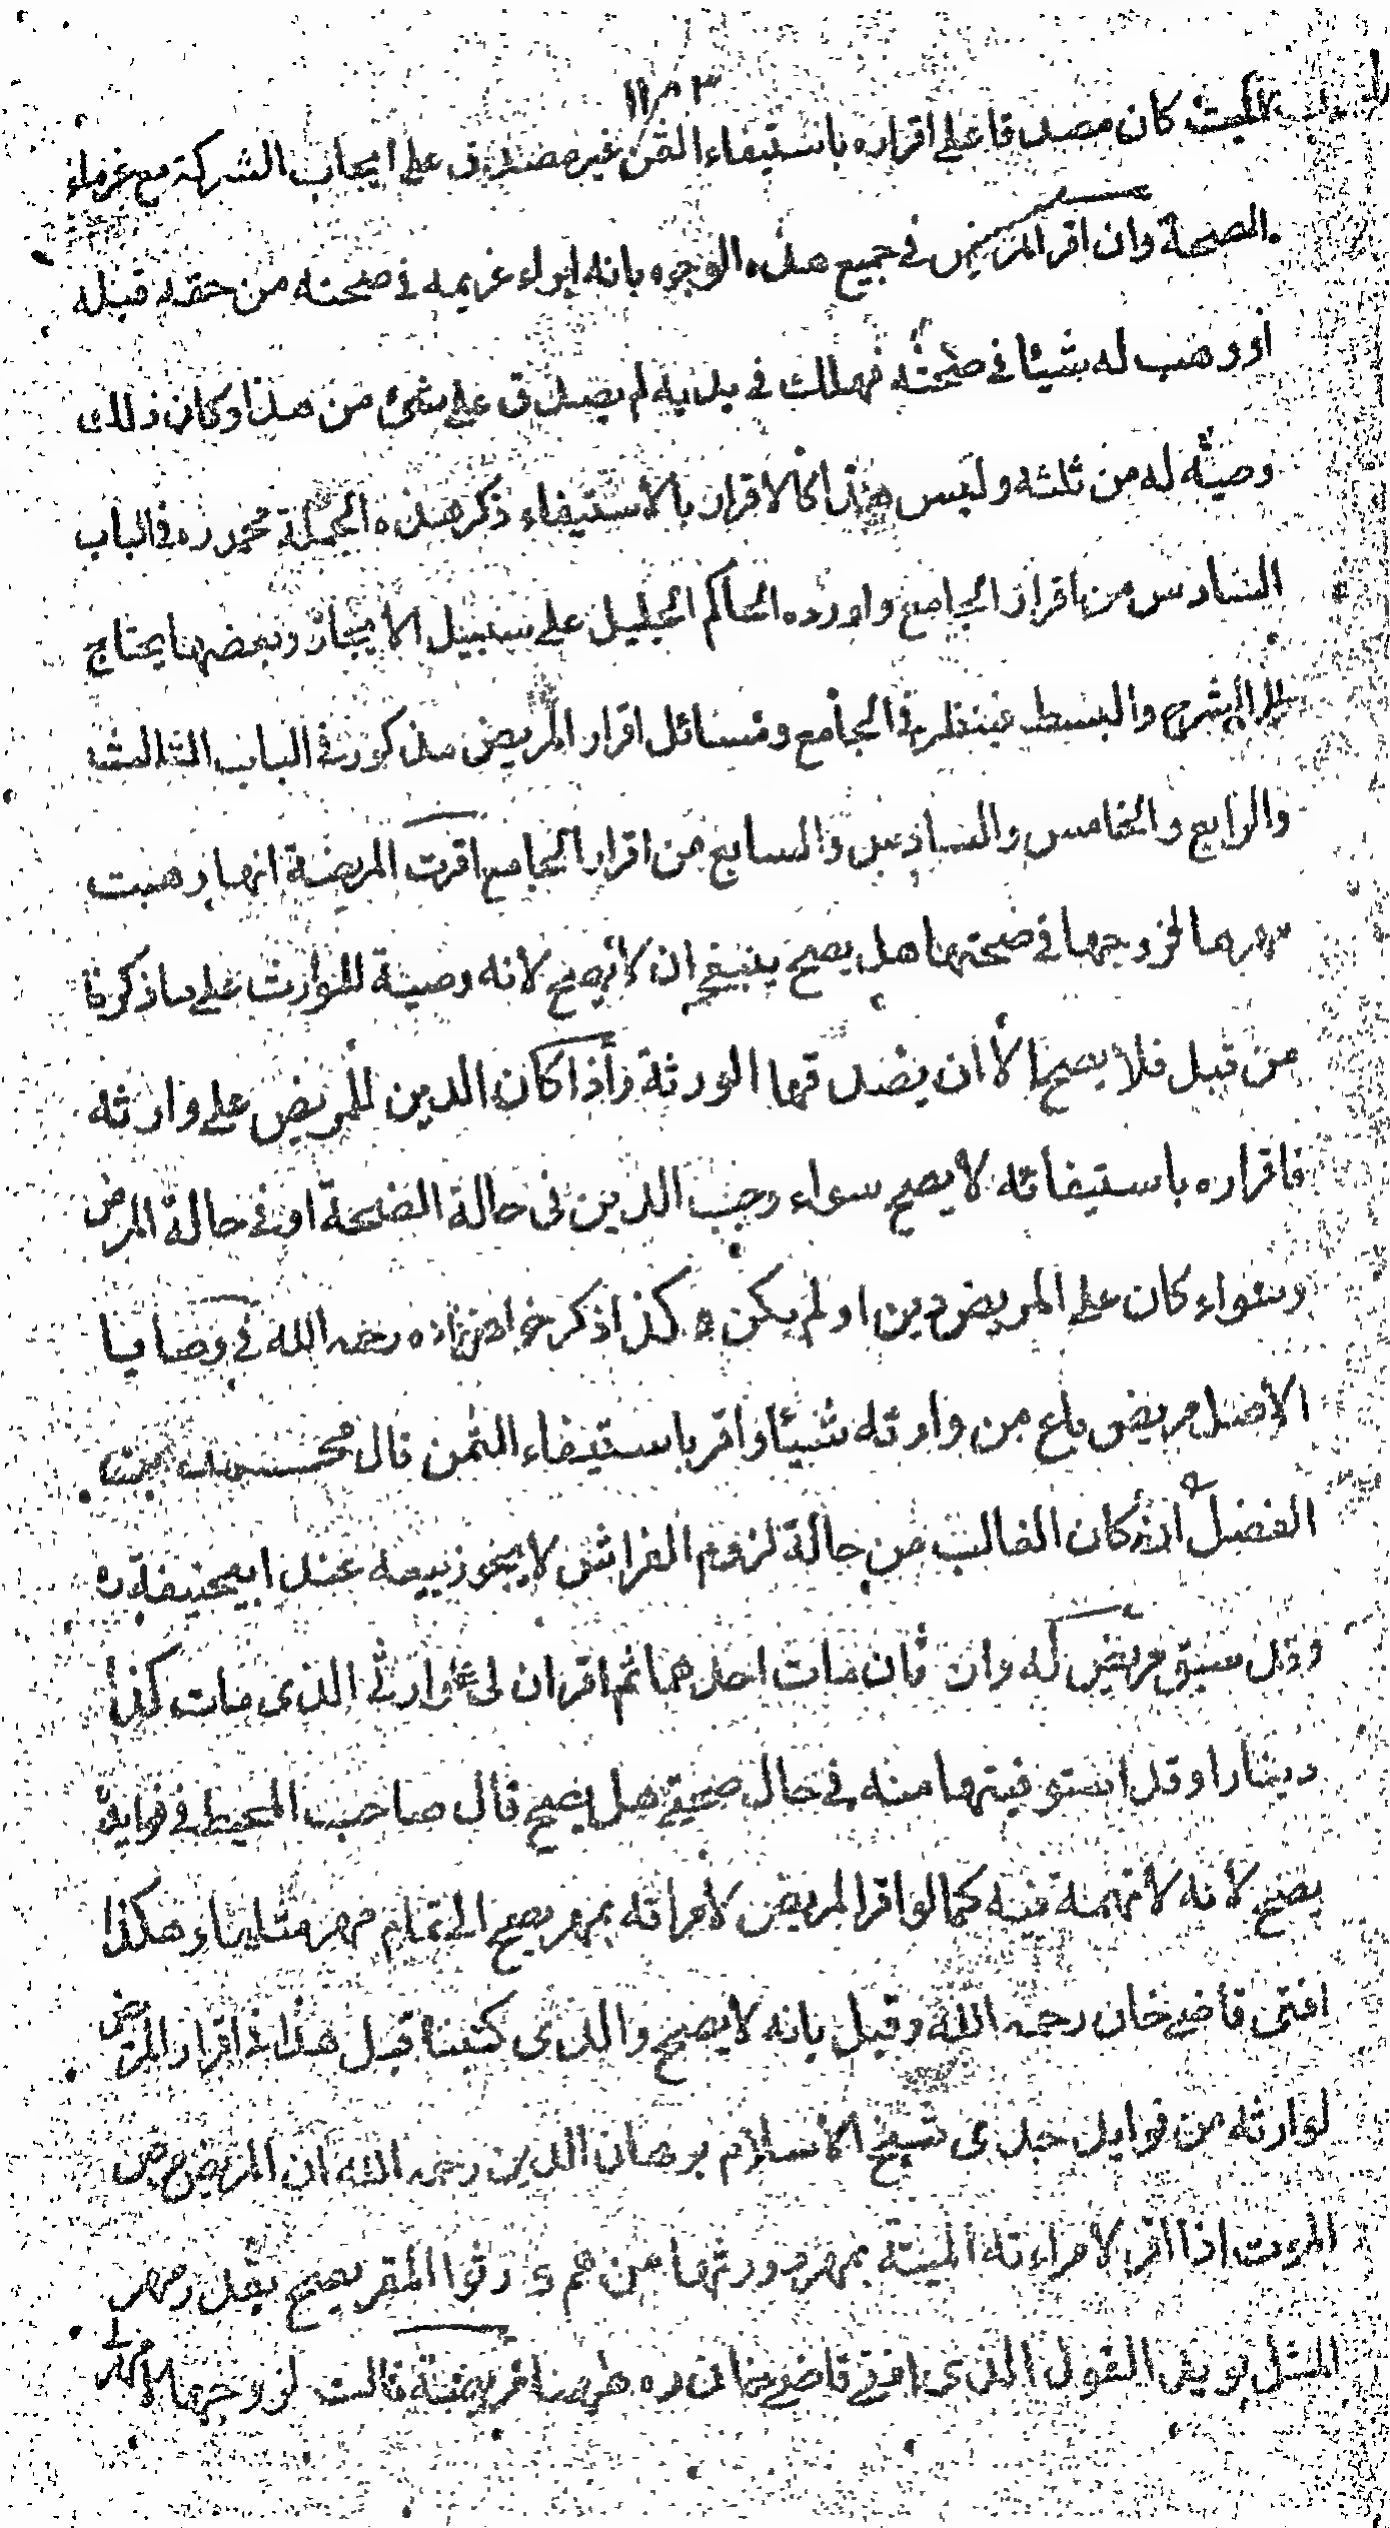 كان مصدقا على اقراره باستيفاء الثمن غير مصدق على ايجاب الشركة مع غرماء
الصحة وان اقر المريض في جميع هذه الوجوه بانه ابراء غريمه في صحته من حقه قبله
او وهب له شيئا في صحته فهلك في يديه لم يصدق على شئ من هذا وكان ذلك
وصية له من ثلثه وليس هذا كالاقرار بالاستيفاء ذكر هذه الجملة محمد ره في الباب
السادس من اقرار الجامع واورده الحاكم الجليل على سبيل الايجاز وبعضها يحتاج
الى الشرح والبسط فينظر في الجامع ومسائل اقرار المريض مذكورة في الباب الثالث
والرابع والخامس والسادس والسابع من اقرار الجامع اقرت المريضة انها وهبت
مهرها لزوجها في صحتها هل يصح ينبغي ان لا يصح لانه وصية للوارث على ما ذكرنا
من قبل فلا يصح الا ان يصدقها الورثة واذا كان الدين للمريض على وارثه
فاقراره باستيفائه لا يصح سواء وجب الدين في حالة الصحة او في حالة المرض
وسواء كان على المريض دين او لم يكن كذا ذكر خواهر زاده رحمه الله في وصايا
الاصل مريض باع من وارثه شيئا واقر باستيفاء الثمن قال محمد بن
الفضل ان كان الغالب من حالة لزوم الفراش لا يجوز بيعه عند ابيحنيفة ره
وقد سبق مريض له وارثان مات احدهما ثم اقر ان لي على وارثي الذي مات كذا
دينارا وقد استوفيتها منه في حال صحتي هل يصح قال صاحب المحيط في فوايده
يصح لانه لا تهمة فيه كما لو اقر المريض لامراته بمهر يصح الى تمام مهر مثلها وهكذا
افتى قاضي خان رحمه الله وقيل بانه لا يصح والذي كتبنا قبل هذا في اقرار المريض
لوارثه من فوايد جدي شيخ الاسلام برهان الدين رحمه الله ان المريض مرض
الموت اذا اقر لامراءته الميتة بمهر وورثتها من هم ورثوا المقر يصح بقدر مهر
المثل يويد القول الذي افتى قاضي خان ره مريضة قالت لزوجها